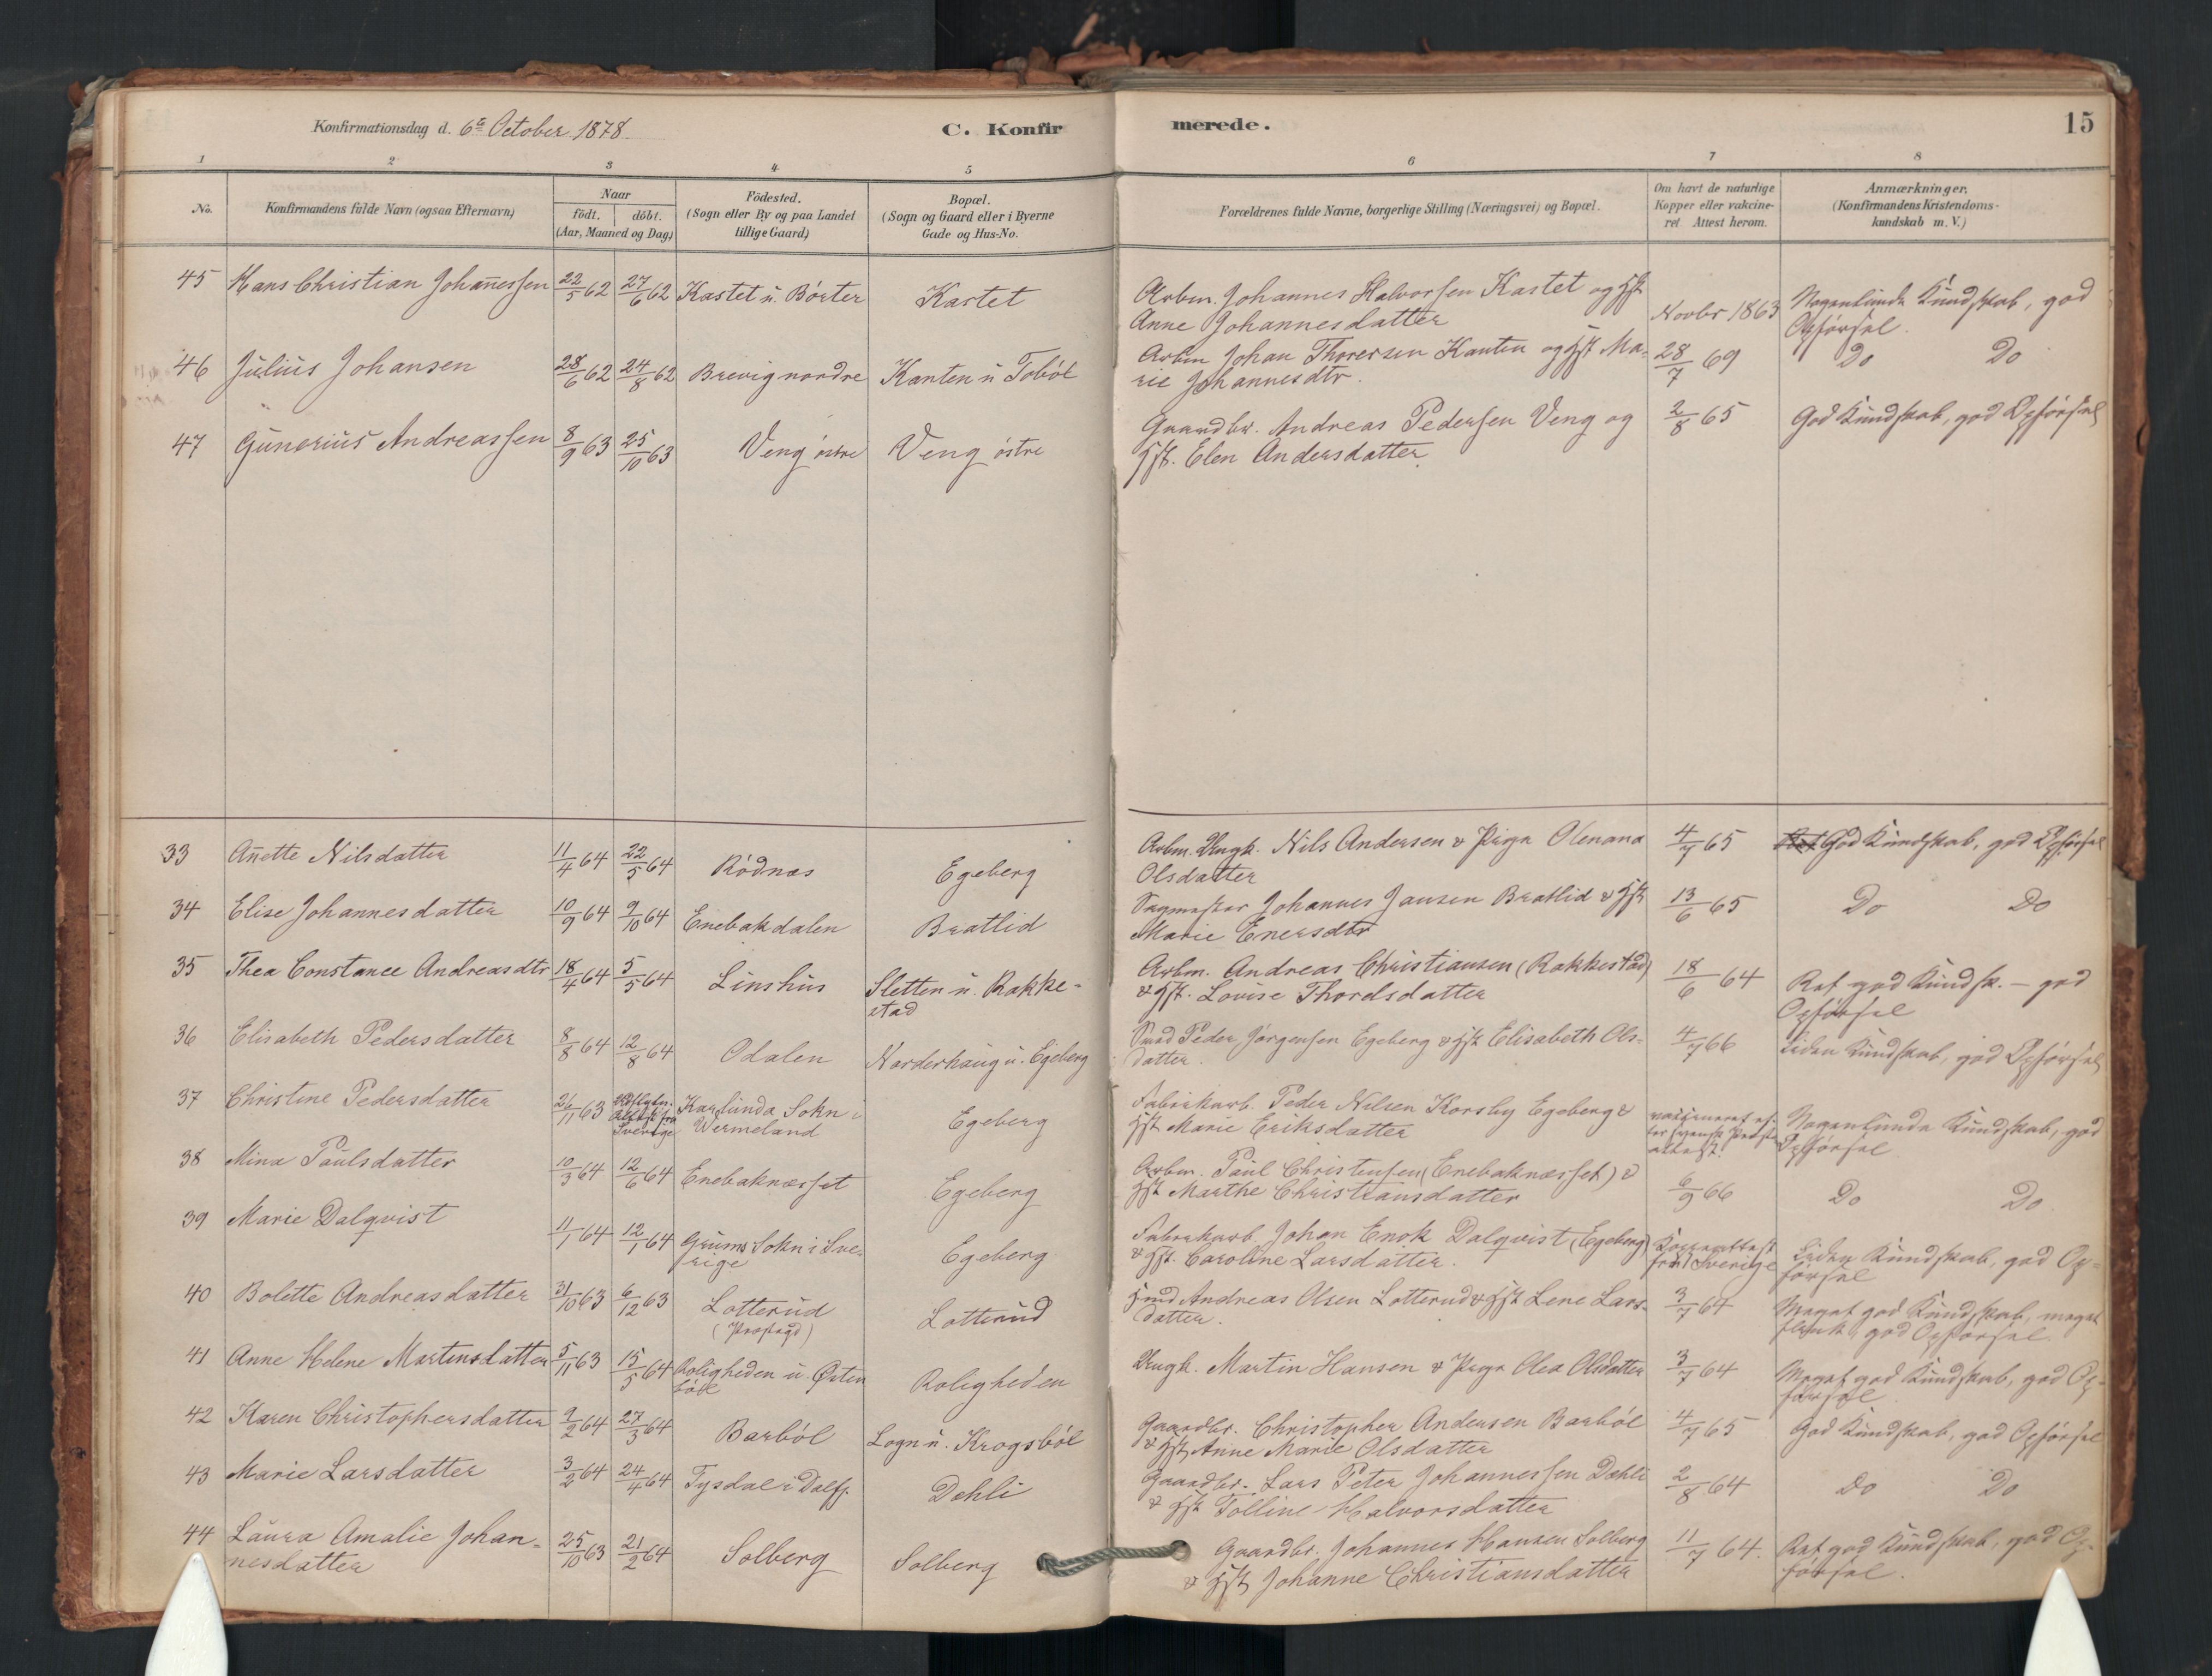 Konfirmationsdag d. 6te October 1878.
C. Konfirmerede.
15
1 2 3 4 5 6 7 8
No.
Konfirmandens fulde Navn (ogsaa Efternavn)
Naar
födt. döbt.
(Aar, Maaned og Dag)
Födested.
(Sogn eller By og paa Landet
tillige Gaard)
Bopæl.
(Sogn og Gaard eller i Byerne
Gade og Hus-No.
Forældrenes fulde Navne, borgerlige Stilling (Næringsvei) og Bopæl.
Om havt de naturlige
Kopper eller vakcine-
ret. Attest herom.
Anmærkninger.
(Konfirmandens Kristendoms-
kundskab m. V.)
45 Hans Christian Johannessen 22/5 62 27/6 62 Kastet u. Börter Kastet Arbm. Johannes Halvorsen Kastet og Hst Novbr 1863 Nogenlunde Kundskab, god
Anne Johannesdatter Opförsel.
46 Julius Johansen 28/6 62 24/8 62 Brevig nordre Kanten u Toböl Arbm Johan Thorersen Kanten og Hst Ma- 28/7 69 Do Do
rie Johannesdtr.
47 Gunerius Andreassen 8/9 63 25/10 63 Veng östre Veng östre Gaardbr. Andreas Pedersen Veng og 2/8 65 God Kundskab, god Opförsel
Hst. Elen Andersdatter
33 Anette Nilsdatter 11/4 64 22/5 64 Rödnæs Egeberg Arbm. Ungk. Nils Andersen & Pige Olenana 4/7 65 God Kundskab, god Opförsel
Olsdatter
34 Elise Johannesdatter 10/9 64 9/10 64 Enebakdalen Bratlid Sagmester Johannes Jansen Bratlid & Hst 13/6 65 Do Do
Marie Enersdtr
35 Thea Constance Andreasdtr 18/4 64 5/5 64 Linshus Sletten u. Rakke-
stad Arbm. Andreas Christiansen (Rakkestad) 18/6 64 Ret god Kundsk. – god
& Hst. Lovise Thordsdatter Opförsel
36 Elisabeth Pedersdatter 8/8 64 12/8 64 Odalen Narderhaug u. Egeberg Smed Peder Jörgensen Egeberg & Hst Elisabeth Ols- 4/7 66 Liden Kundskab, god Opförsel
datter.
37 Christine Pedersdatter 26/11 63 Sverige Karlunda Sokn i
Wermeland Egeberg Fabrikarb. Peder Nilsen Korsby Egeberg &
Hst Marie Eriksdatter vaccineret ef-
ter svensk Præste
attest. Nogenlunde Kundskab, god
Opförsel
38 Mina Paulsdatter 10/3 64 12/6 64 Enebaknesset Egeberg Arbm. Paul Christensen (Enebaknesset) &
Hst Marthe Christiansdatter 6/9 66 Do Do
39 Marie Dalqvist 11/1 64 12/1 64 Grums Sokn i Sve-
rige Egeberg Fabrikarb. Johan Enok Dalqvist (Egeberg)
& Hst. Caroline Larsdatter. Koppeattest
fra Sverige Liden Kundskab, god Op-
försel
40 Bolette Andreasdatter 31/10 63 6/12 63 Lotterud
(Præstegd) Lotterud Hmd Andreas Olsen Lotterud & Hst Lene Lars-
datter. 3/7 64 Meget god Kundskab, meget
flink, god Opförsel.
41 Anne Helene Martinsdatter 5/11 63 15/5 64 Roligheden u. Östen
böl Roligheden Ungk. Martin Hansen & Pige Olea Olsdatter 3/7 64 Meget god Kundskab, god Op-
försel
42 Karen Christophersdatter 9/2 64 27/3 64 Barböl Logn u. Krogsböl Gaardbr. Christopher Andersen Barböl
& Hst Anne Marie Olsdatter 4/7 65 God Kundskab, god Opförsel
43 Marie Larsdatter 3/2 64 24/4 64 Tysdal i Dalsf. Dehli Gaardbr. Lars Peter Johannessen Dæhli
& Hst Tolline Halvorsdatter 2/8 64 Do Do
44 Laura Amalie Johan-
nesdatter 25/10 63 21/2 64 Solberg Solberg Gaardbr. Johannes Hansen Solberg
& Hst Johanne Christiansdatter 11/7 64. Ret god Kundskab, god Op-
försel.